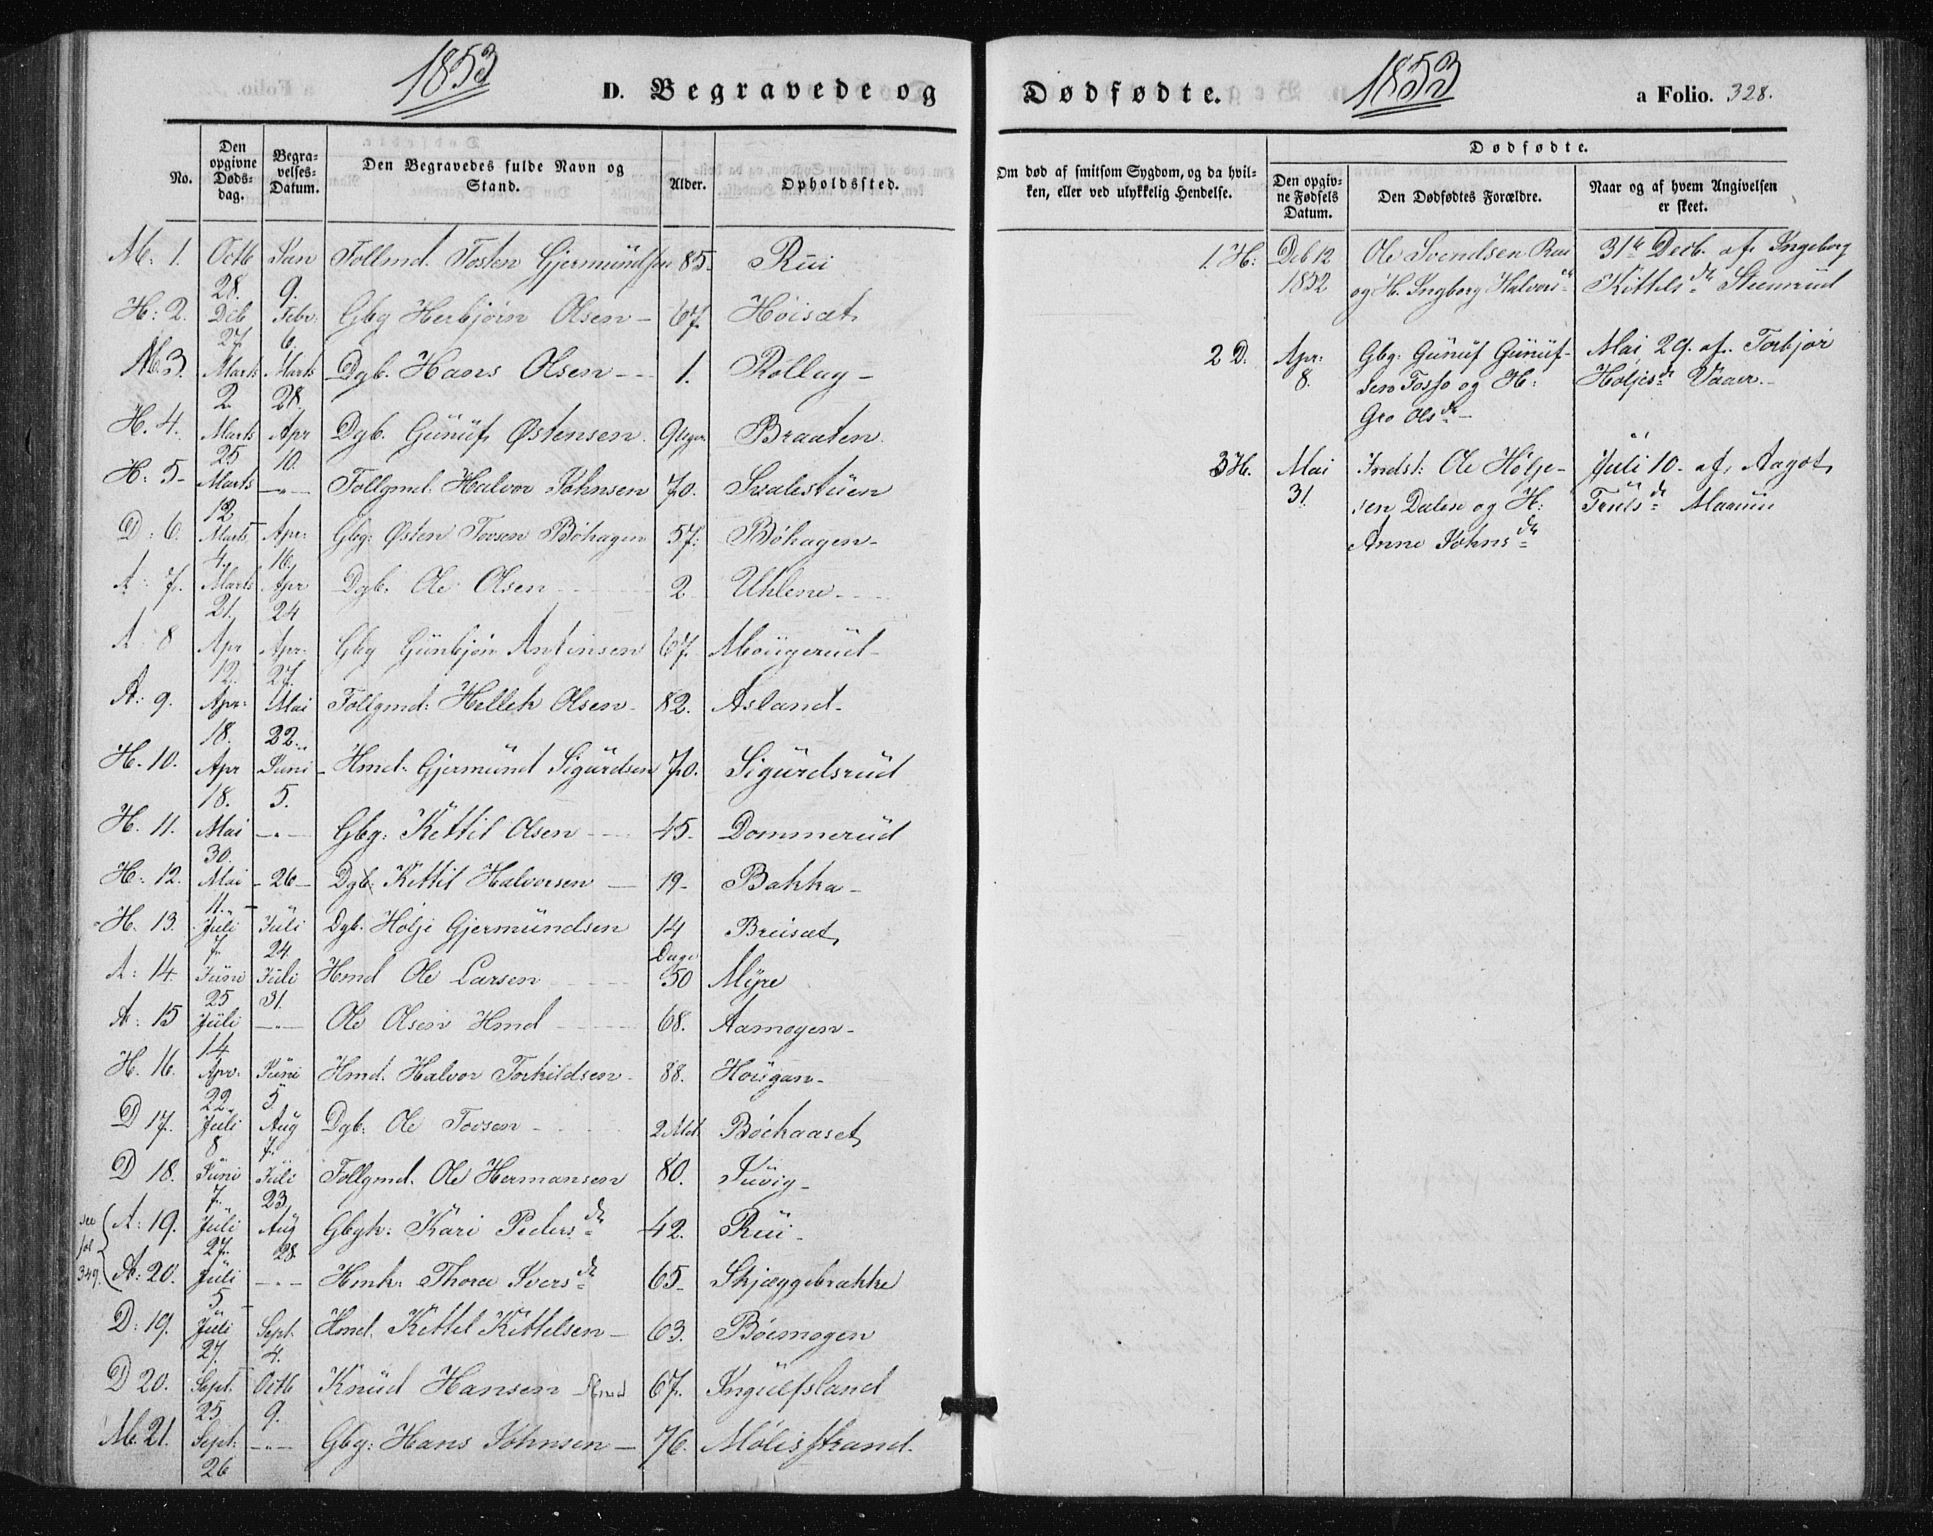 1853
D. Begravede og
No.
Den opgivne Dødsdag.
Begravelses-Datum.
Den Begravedes fulde Navn og Stand.
Alder.
Opholdssted.
M: 1. Octb 28. Jan 9. Follmd. Tosten Gjermundsen 85. Rui
H: 2. Dcb 27. Febr: 6. Gbg Herbjørn Olsen 67. Høisæt
M. 3. Marts 2. Marts 28. Dgb. Hans Olsen 1. Rollag
H. 4. Marts 25 Apr 10. Dgb. Gunuf Østensen. 9 Uger. Braaten.
H: 5 Marts 12 -„- Follgmd. Halvor Johnsen 70. Svalestuen
D: 6. Marts 4. Apr: 16. Gbg: Østen Tovsen Bøhagen 57. Bøhagen
A: 7. Marts 21. Apr 24 Dgb. Ole Olsen 2. Uhlene
A: 8 Apr 12. Apr. 27. Gbg Gunbjør Anfinsen 67. Mougerud
A: 9. Apr. 18. Mai 22. Follgmd: Hellek Olsen 82. Asland
H. 10. Apr 18. Juni 5. Hmd. Gjermund Sigurdsen 70. Sigurdsrud
H. 11. Mai 30. -„- Gbg: Kettil Olsen 45. Dommerud
H: 12. Mai 11. -26- Dgb: Kittil Halvorsen 19 Bakka
H. 13. Juli 7. Juli 24. Dgb. Holje Gjermundsen 14 Dage Breisæt
A: 14. Juni 25 Juli 31. Hmd Ole Larsen 50 Myre
A: 15 Juli 14 -„- Ole Olsen Hmd 68. Aamogen
H. 16. Apr. 22. Juni 5 Hmd. Halvor Torkildsen 88. Hougan
D 17. Juli 8 Aug 7. Dgb. Ole Tovsen 2 Md Bøehaaset
D 18. Juni 7. Juli 23 Follgmd. Ole Hermansen 80. Juvig
see fol 349.
A: 19. Juli 27. Aug 28. Gbgk: Kari Pedersdr 42. Rui
A: 20. Juli 5 -„- Hmk: Thora Iversdr 65 Skjæggebrakke
D: 19. Juli 27. Sept. 4. Hmd. Kittil Kittelsen 63. Bøemogen
D 20. Sept. 25 Octb 9. Knud Hansen Hmd 67. Ingulfsland
M. 21. Sept. 26 -„- Gbg: Hans Johnsen 76. Mølisstrand.
Dødfødte.
1853
a Folio. 328.
Om død af smitsom Sygdom, og da hvilken, eller ved ulykkelig Hendelse.
Dødfødte.
Den opgivne Fødsels Datum.
Den Dødfødtes Forældre.
Naar og af hvem Angivelsen er skeet.
1. H: Dcb 12 Ole Svendsen Rui 31te Decb. af Ingeborg
1852 og H. Ingborg Halvorsdr Kittelsdr Steenrud
2 D. Apr: Gbg: Gunuf Gunuf- Mai 29. af Torbjør
8. sen Fosso og H: Holjesdr Vaaer.
Gro Olsdr
3 H. Mai Indst: Ole Holje- Juli 10. af Aagot
31. sen Dalen og H: Trulsdr
Anne Johnsdr